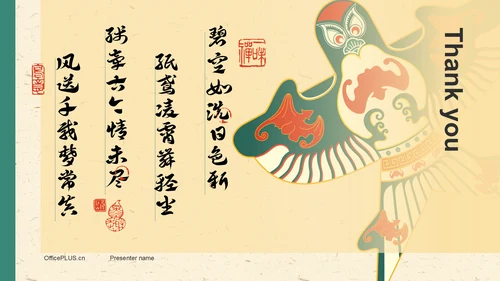 Thank you
碧空如洗日色新
纸鸢凌霄舞轻尘
情未尽
风送千载梦常
一味禅
OfficePLUS.cn
Presenter name